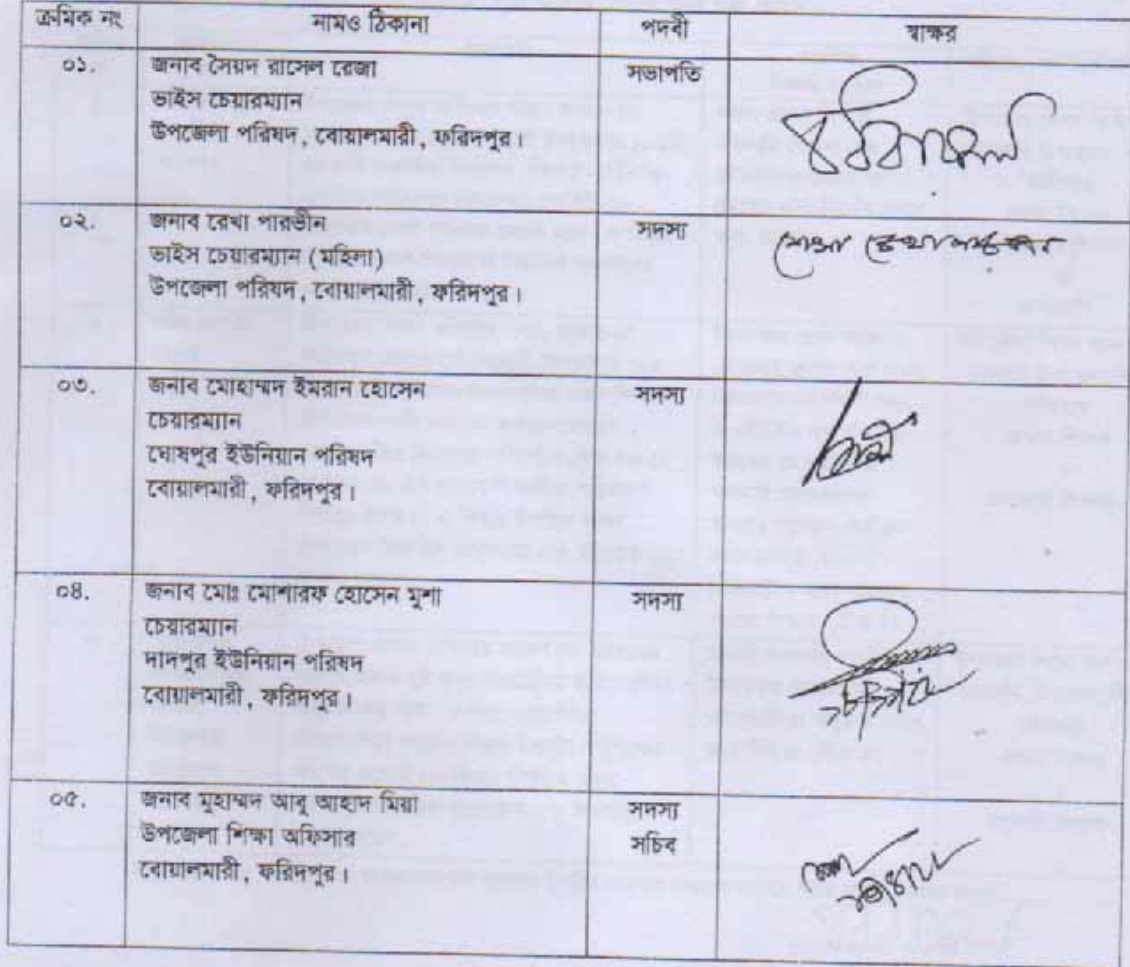 ক্রমিক নং নামও ঠিকানা পদবী স্বাক্ষর
০১. জনাব সৈয়দ রাসেল রেজা সভাপতি
ভাইস চেয়ারম্যান
উপজেলা পরিষদ, বোয়ালমারী, ফরিদপুর।
০২. জনাব রেখা পারভীন সদস্য
ভাইস চেয়ারম্যান (মহিলা)
উপজেলা পরিষদ, বোয়ালমারী, ফরিদপুর।
০৩. জনাব মোহাম্মদ ইমরান হোসেন সদস্য
চেয়ারম্যান
ঘোষপুর ইউনিয়ান পরিষদ
বোয়ালমারী, ফরিদপুর।
০৪. জনাব মোঃ মোশারফ হোসেন মুশা সদস্য
চেয়ারম্যান
দাদপুর ইউনিয়ান পরিষদ
বোয়ালমারী, ফরিদপুর।
০৫. জনাব মুহাম্মদ আবু আহাদ মিয়া সদস্য
উপজেলা শিক্ষা অফিসার সচিব
বোয়ালমারী, ফরিদপুর।